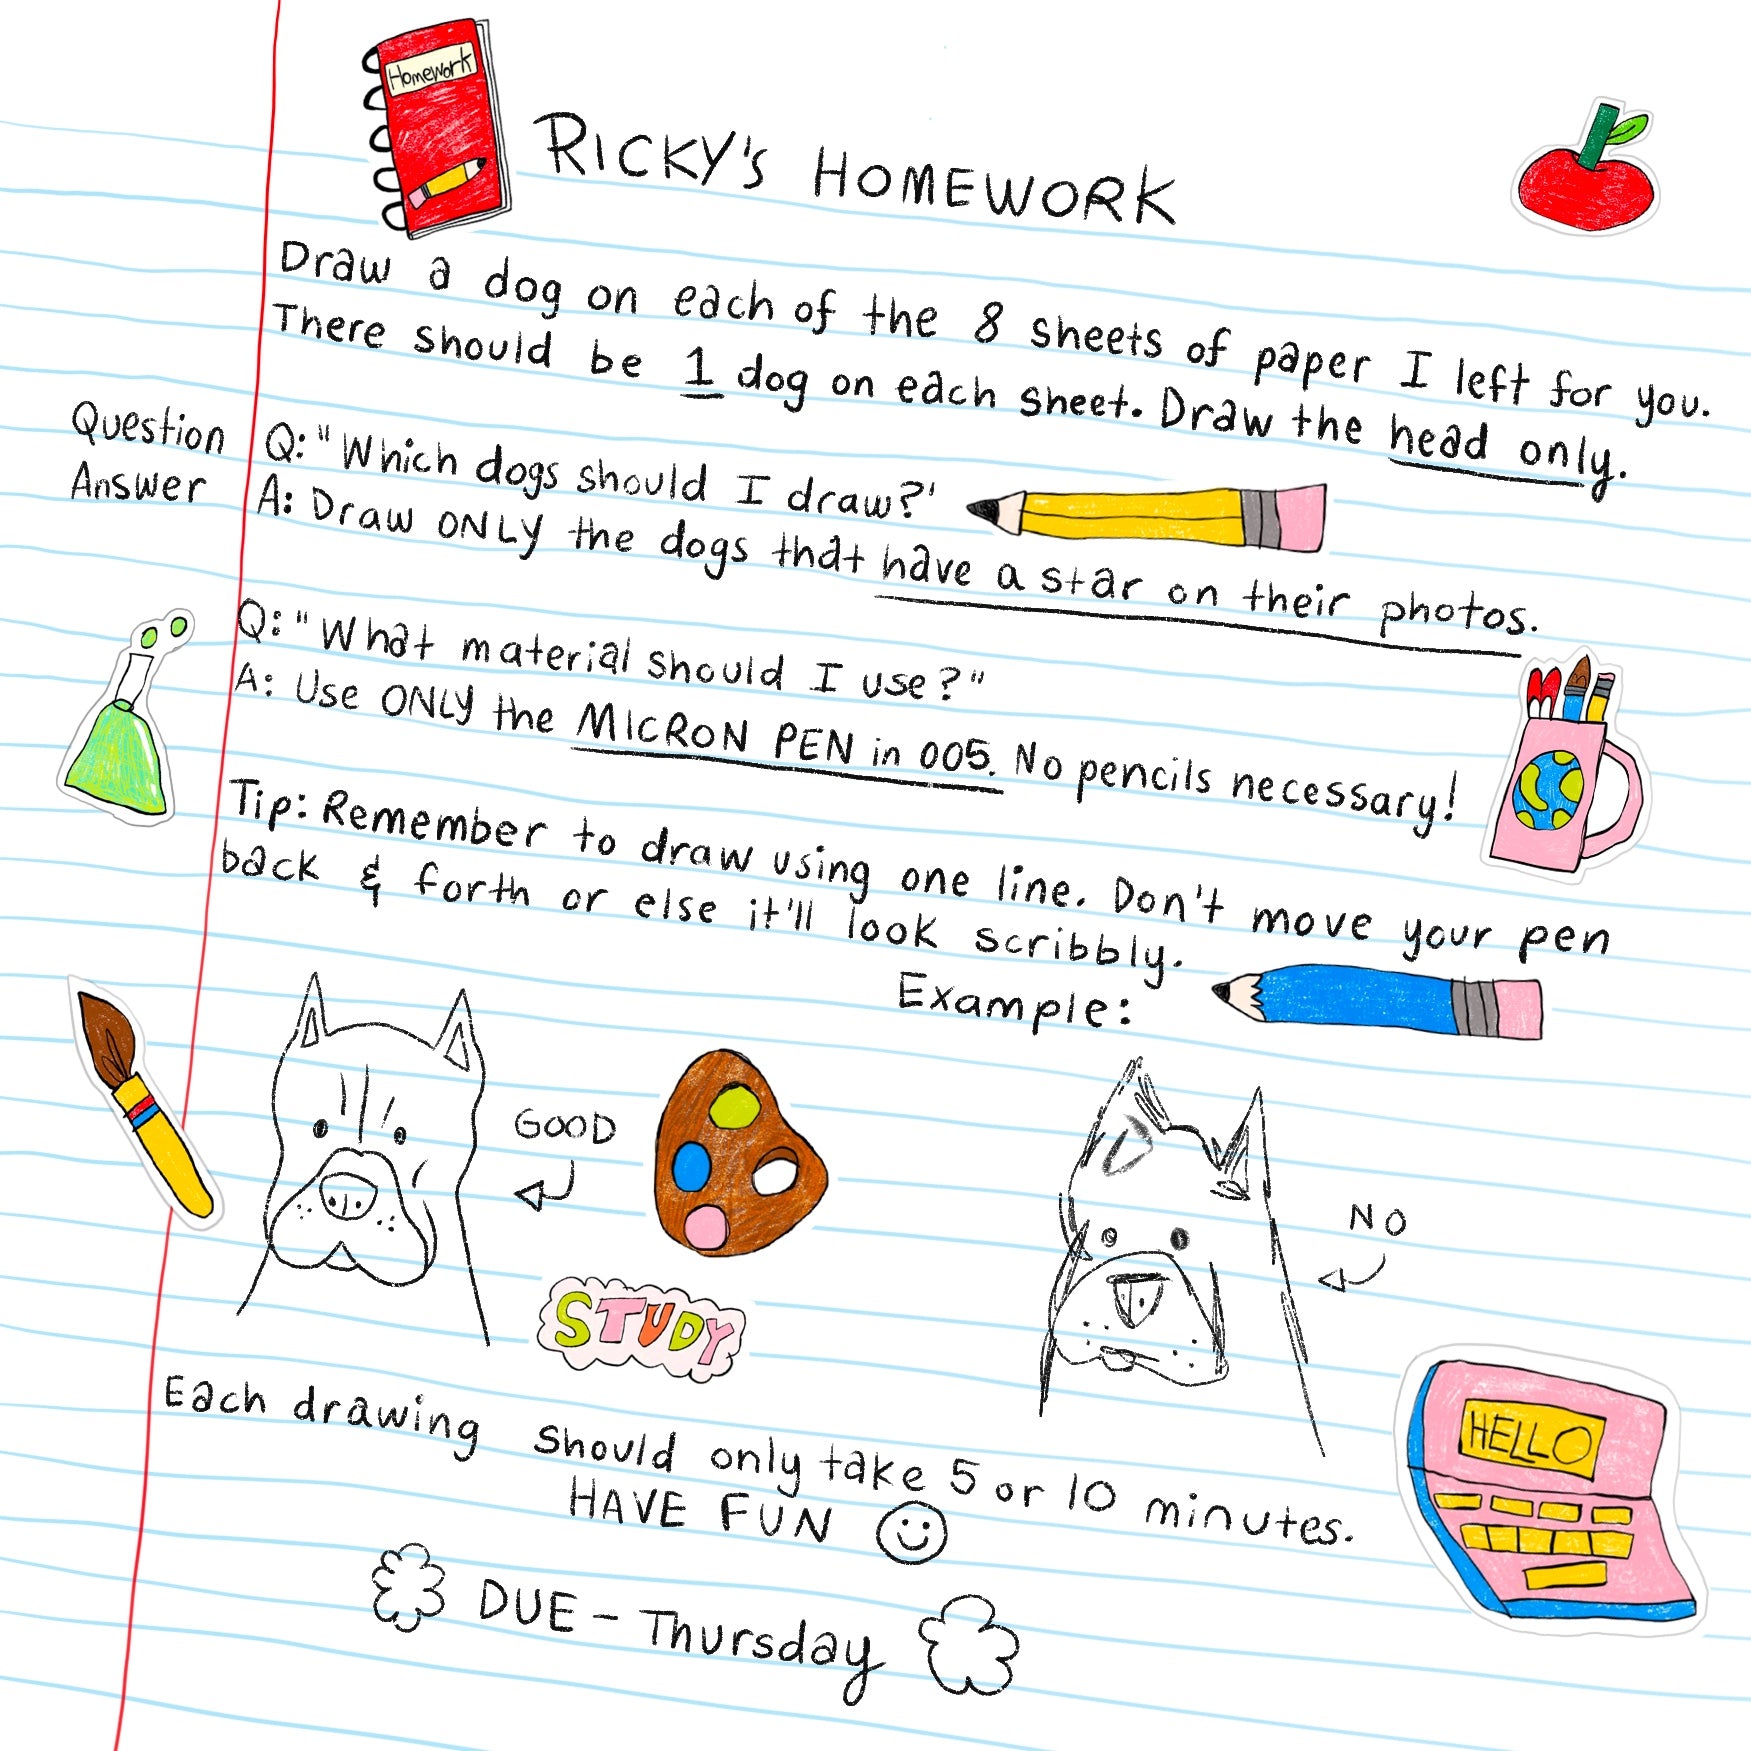 Homework
RICKY'S HOMEWORK
Draw a dog on each of the 8 sheets of paper I left for you.
There should be 1 dog on each sheet. Draw the head only.
Question Q: "Which dogs should I draw?'
Answer A: Draw ONLY the dogs that have a star on their photos.
Q: "What material should I use?"
A: Use ONLY the MICRON PEN in 005. No pencils necessary!
Tip: Remember to draw using one line. Don't move your pen
back & forth or else it'll look scribbly.
Example:
GOOD
NO
STUDY
HELLO
Each drawing should only take 5 or 10 minutes.
HAVE FUN
DUE - Thursday